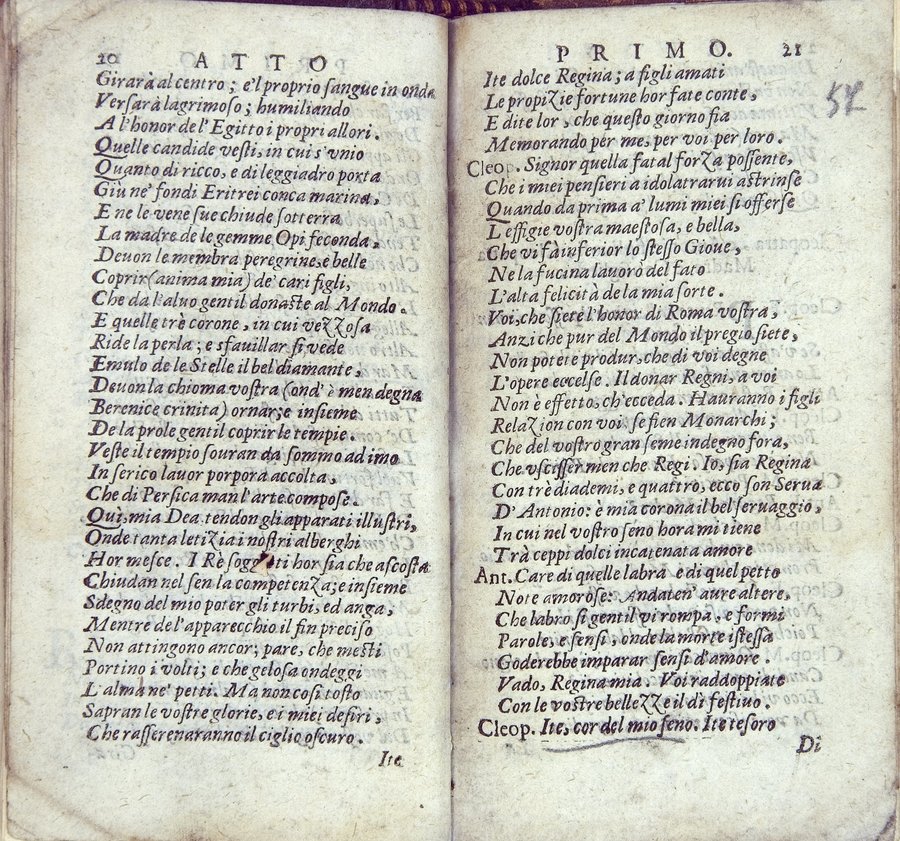 20 ATTO
Girarà al centro; e'l proprio sangue in onda
Versarà lagrimoso; humiliando
A l'honor de l'Egitto i propri allori.
Quelle candide vesti, in cui s'vnio
Quanto di ricco, e di leggiadro porta
Giù ne' fondi Eritrei conca marina,
E ne le vene sue chiude sotterra
La madre de le gemme Opi feconda,
Deuon le membra peregrine, e belle
Coprir (anima mia) de' cari figli,
Che da l'aluo gentil donaste al Mondo.
E quelle trè corone, in cui vezzosa
Ride la perla; e sfauillar si vede
Emulo de le Stelle il bel diamante,
Deuon la chioma vostra (ond' è men degna
Berenice crinita) ornar; e insieme
De la prole gentil coprir le tempie.
Veste il tempio souran da sommo ad imo
In serico lauor porpora accolta,
Che di Persica man l'arte compose.
Quì, mia Dea tendon gli apparati illustri,
Onde tanta letizia i nostri alberghi
Hor mesce. I Rè soggeti hor sia che ascosta
Chiudan nel sen la competenza; e insieme
Sdegno del mio poter gli turbi, ed anga;
Mentre de l'apparecchio il fin preciso
Non attingono ancor; pare, che mesti
Portino i volti; e che gelosa ondeggi
L'alma ne' petti. Ma non così tosto
Sapran le vostre glorie, e i miei desiri,
Che rasserenaranno il ciglio oscuro.
Ite
PRIMO. 21
57
Ite dolce Regina; a figli amati
Le propizie fortune hor fate conte,
E dite lor, che questo giorno fia
Memorando per me, per voi per loro.
Cleop. Signor quella fatal forza possente,
Che i miei pensieri a idolatrarui astrinse
Quando da prima a' lumi miei si offerse
L'effigie vostra maestosa, e bella,
Che vi fà inferior lo stesso Gioue,
Ne la fucina lauorò del fato
L'alta felicità de la mia sorte.
Voi, che siete l'honor di Roma vostra,
Anzi che pur del Mondo il pregio siete,
Non potete produr, che di voi degne
L'opere eccelse. Il donar Regni, a voi
Non è effetto, ch'ecceda. Hauranno i figli
Relazion con voi se fien Monarchi;
Che del vostro gran seme indegno fora,
Che vscisser men che Regi. Io, sia Regina
Con trè diademi, e quattro, ecco son Serua
D'Antonio: è mia corona il bel seruaggio,
In cui nel vostro seno hora mi tiene
Trà ceppi dolci incatenata amore
Ant. Care di quelle labra e di quel petto
Note amorose: Andaten' aure altere,
Che labro si gentil vi rompa, e formi
Parole, e sensi, onde la morte istessa
Goderebbe imparar sensi d'amore.
Vado, Regina mia. Voi raddoppiate
Con le vostre bellezze il dì festiuo.
Cleop. Ite, cor del mio seno. Ite tesoro
Di